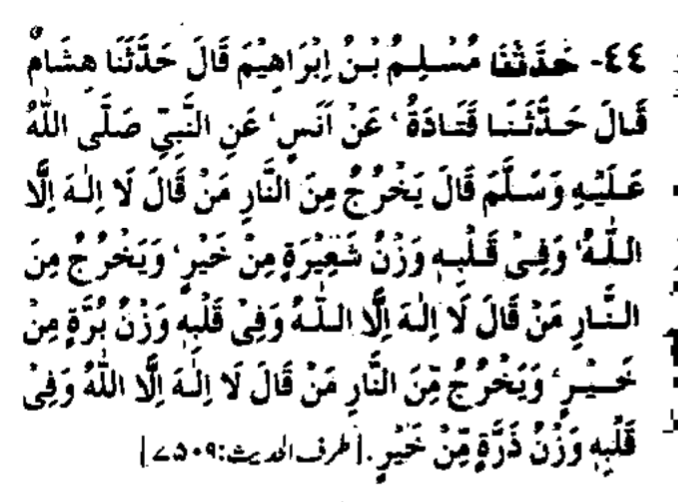 ٤٤- حَدَّثَنَا مُسْلِمُ بْنُ اِبْرَاهِيْمَ قَالَ حَدَّثَنَا هِشَامٌ
قَالَ حَدَّثَنَا قَتَادَةُ ، عَنْ اَنَسٍ ، عَنِ النَّبِيِّ صَلَّى اللّٰهُ
عَلَيْهِ وَسَلَّمَ قَالَ يَخْرُجُ مِنَ النَّارِ مَنْ قَالَ لَا اِلٰهَ اِلَّا
اللّٰهُ ، وَفِىْ قَلْبِهٖ وَزْنُ شَعِيْرَةٍ مِنْ خَيْرٍ ، وَيَخْرُجُ مِنَ
النَّارِ مَنْ قَالَ لَا اِلٰهَ اِلَّا اللّٰهُ وَفِىْ قَلْبِهٖ وَزْنُ بُرَّةٍ مِنْ
خَيْرٍ ، وَيَخْرُجُ مِّنَ النَّارِ مَنْ قَالَ لَا اِلٰهَ اِلَّا اللّٰهُ وَفِىْ
قَلْبِهٖ وَزْنُ ذَرَّةٍ مِّنْ خَيْرٍ . [طرف الحدیث: ۷۵۰۹]